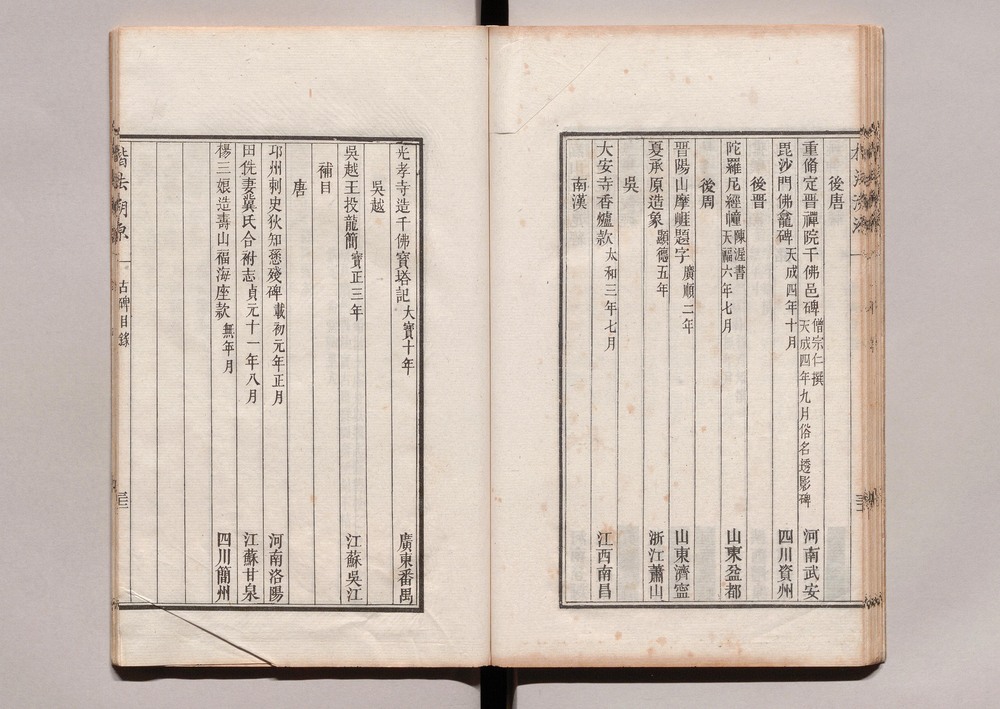 後唐
重脩定晉禪院千佛邑碑 僧宗仁撰 天成四年九月俗名透影碑 河南武安
毘沙門佛龕碑 天成四年十月 四川資州
後晉
陀羅尼經幢 陳渥書 天福六年七月 山東益都
後周
晉陽山摩崖題字 廣順二年 山東濟寧
夏承原造象 顯德五年 浙江蕭山
吳
大安寺香爐款 太和三年七月 江西南昌
南漢
光孝寺造千佛寶塔記 大寶十年 廣東番禺
吳越
吳越王投龍簡 寶正三年 江蘇吳江
補目
唐
邛州刺史狄知愻殘碑 載初元年正月 河南洛陽
田侁妻冀氏合祔志 貞元十一年八月 江蘇甘泉
楊三娘造壽山福海座款 無年月 四川簡州
楷法溯原 古碑目錄